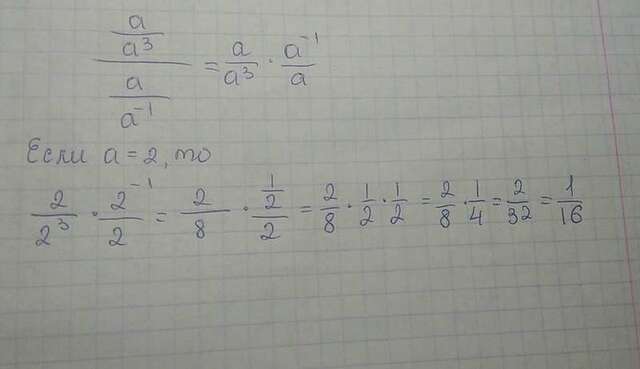 a/a³ / a/a⁻¹ = a/a³ · a⁻¹/a
Если a = 2, то
2/2³ · 2⁻¹/2 = 2/8 · 1/2/2 = 2/8 · 1/2 · 1/2 = 2/8 · 1/4 = 2/32 = 1/16